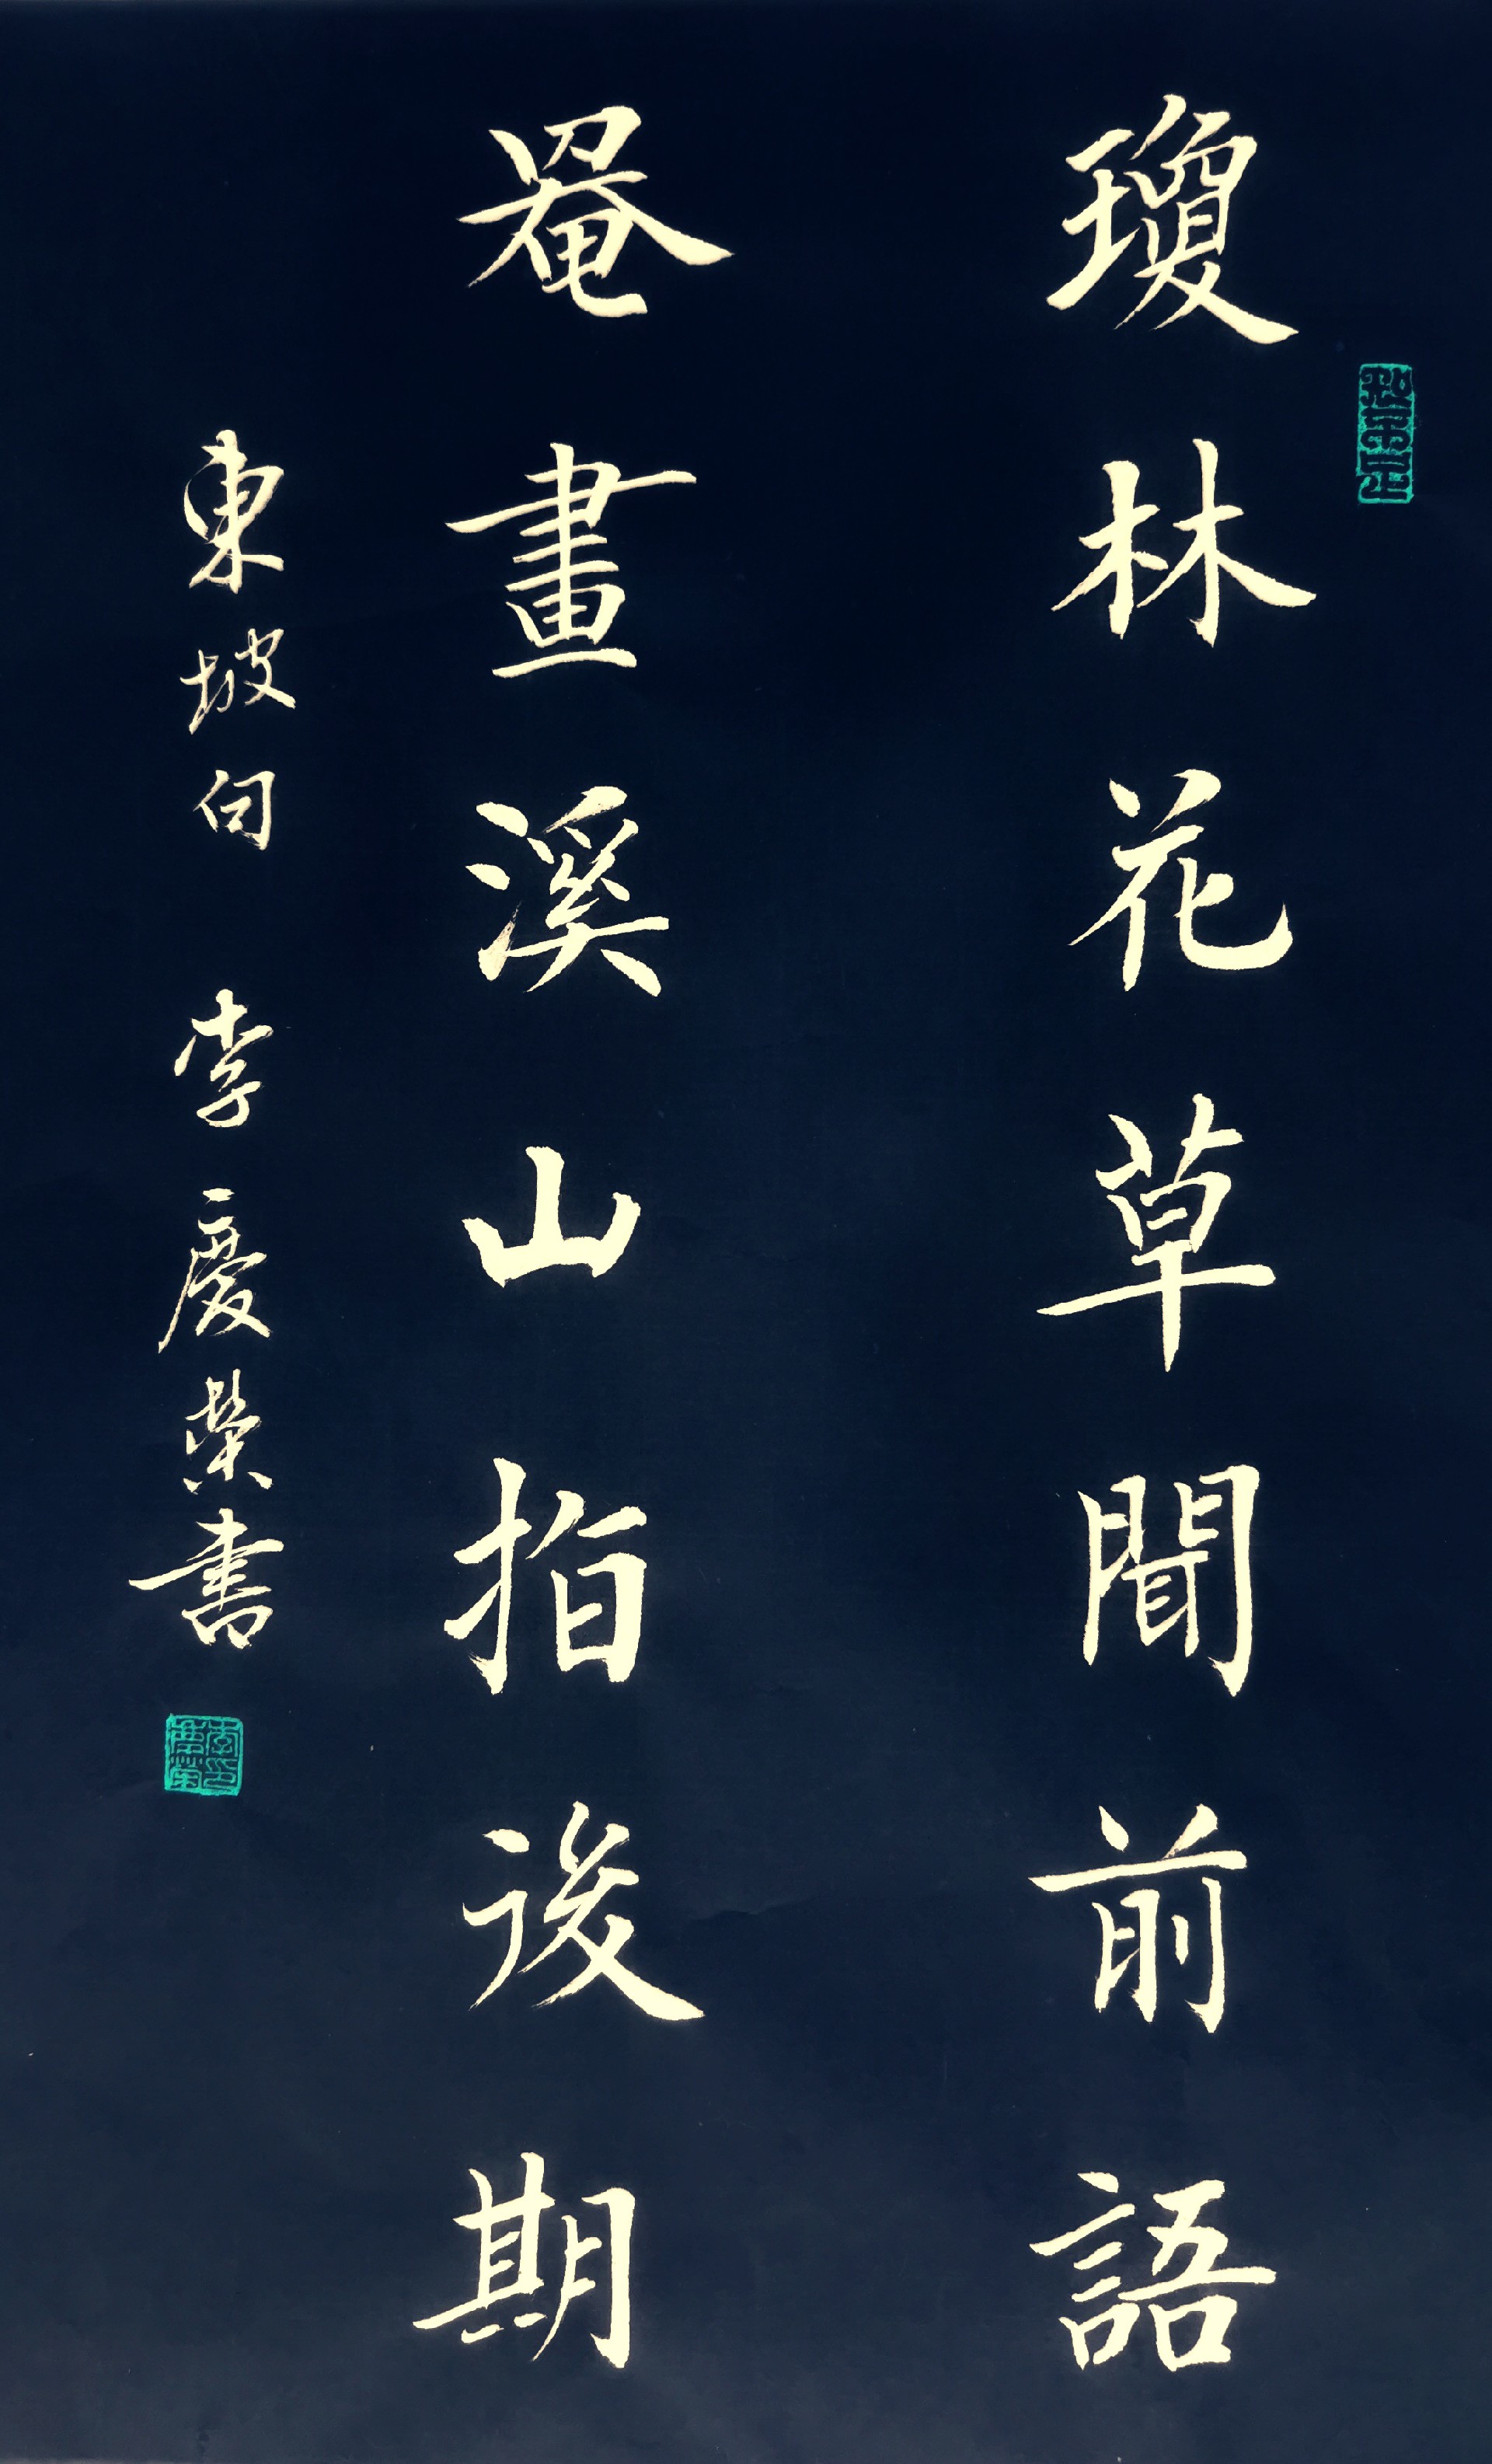 瓊林花草聞前語
罨畫溪山指後期
東坡句 李慶榮書
李慶榮印